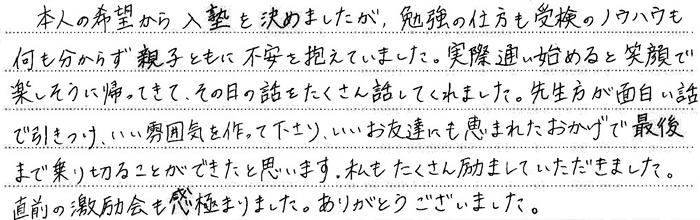 本人の希望から入塾を決めましたが，勉強の仕方も受検のノウハウも
何も分からず親子ともに不安を抱えていました。実際通い始めると笑顔で
楽しそうに帰ってきて、その日の話をたくさん話してくれました。先生方が面白い話
で引きつけ、いい雰囲気を作って下さり、いいお友達にも恵まれたおかげで最後
まで乗り切ることができたと思います。私もたくさん励ましていただきました。
直前の激励会も感極まりました。ありがとうございました。